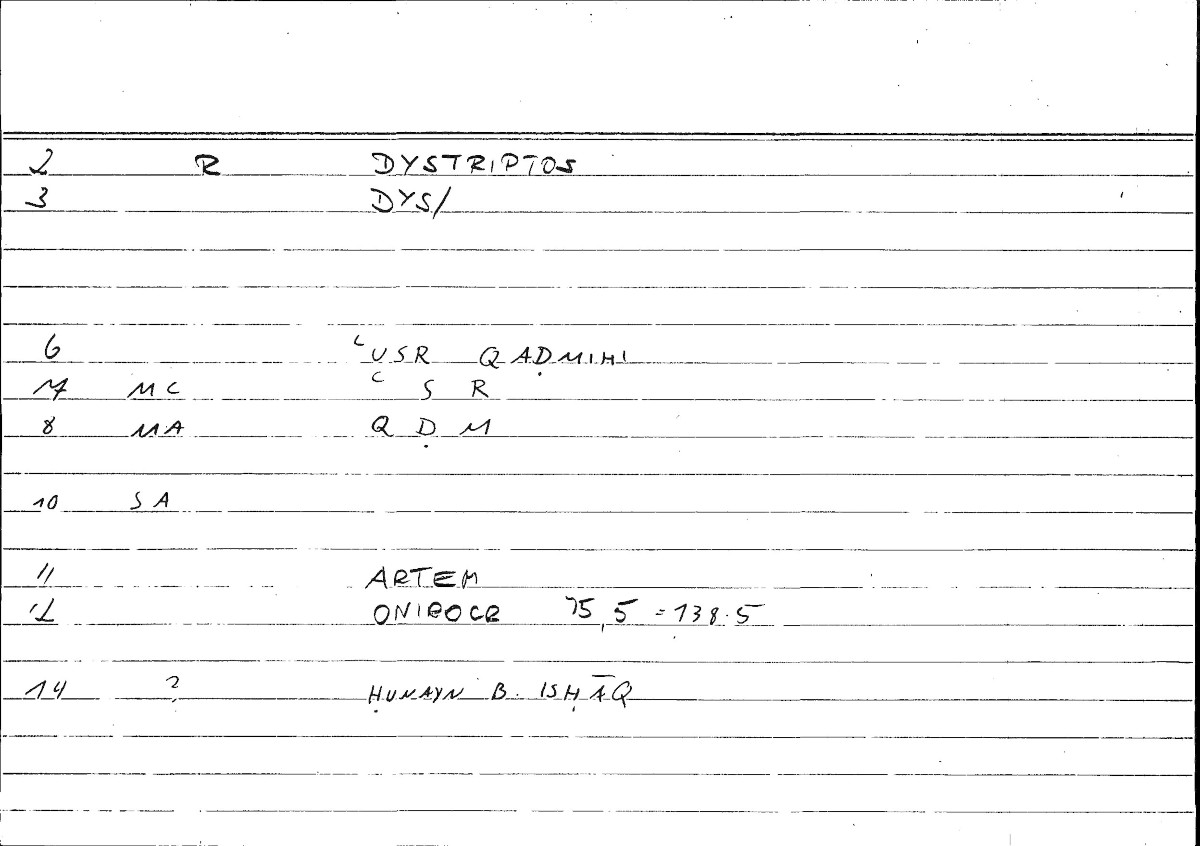 2 R DYSTRIPTOS
3 DYS/
6 ʿUSR QAḌMIHI
7 MC ʿ S R
8 MA Q Ḍ M
10 SA
11 ARTEM
12 ONIROCR 75,5 = 138.5
14 ? ḤUNAYN B. ISḤĀQ